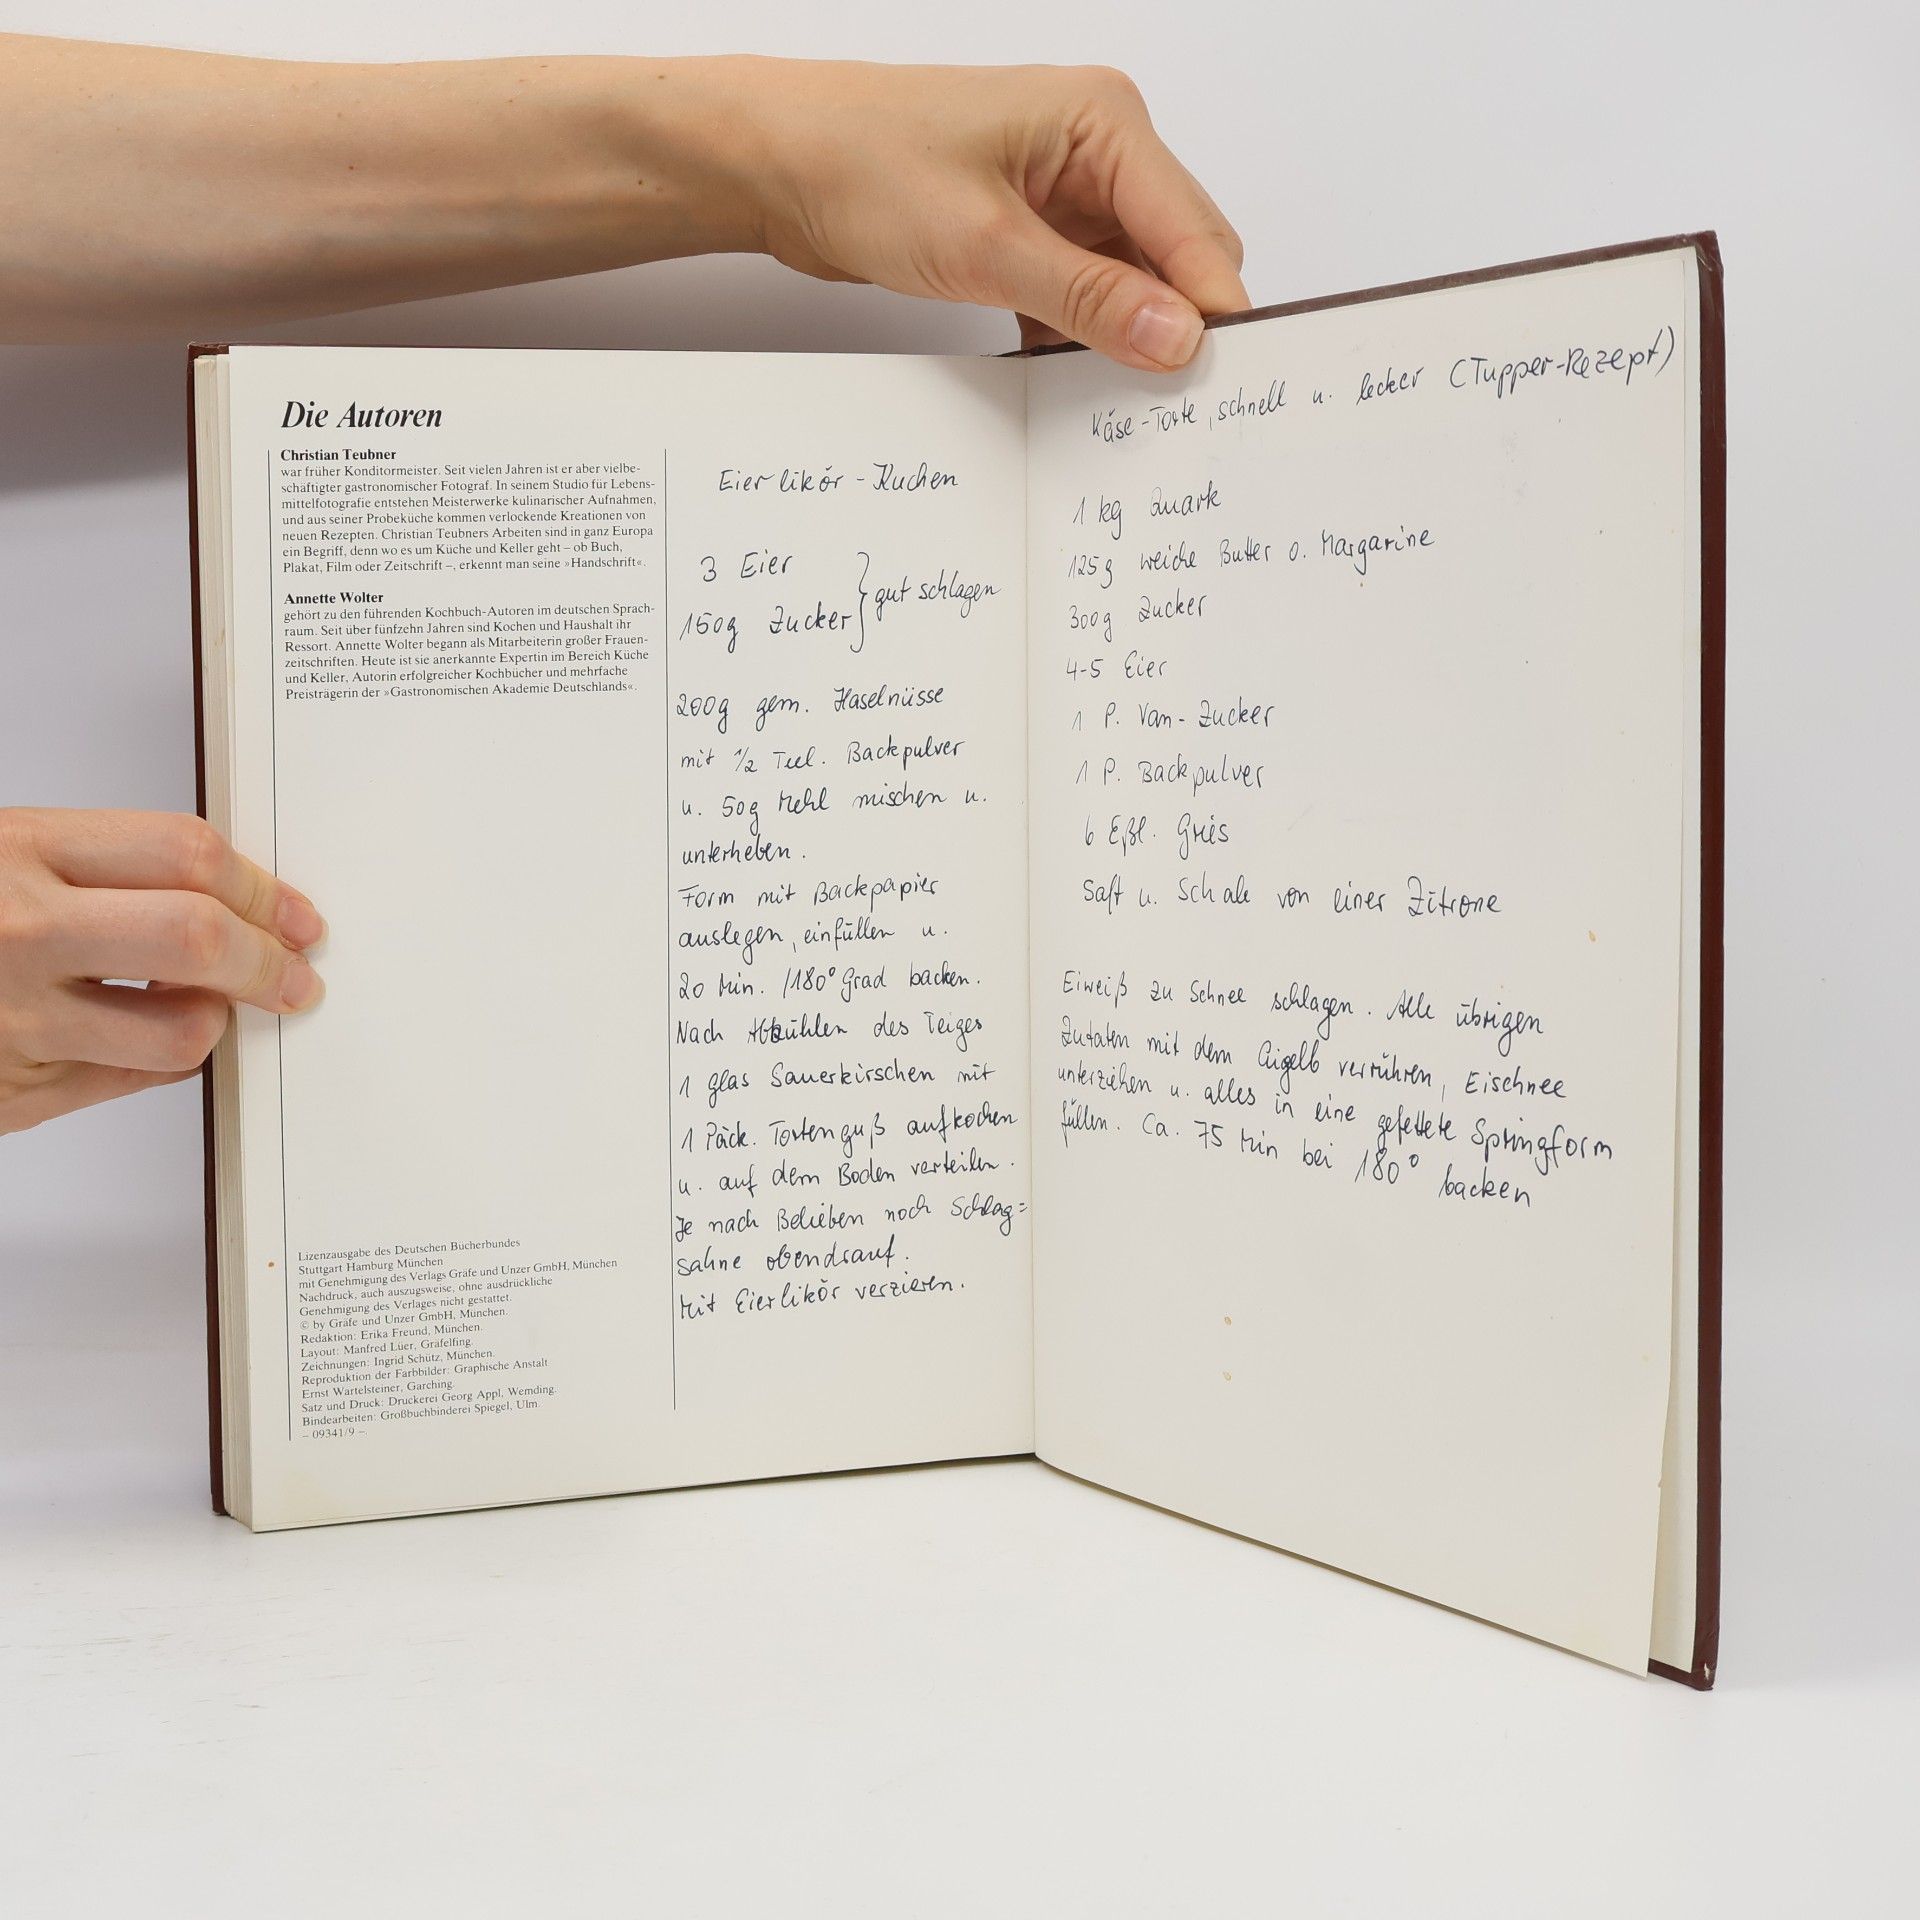 Die Autoren
Christian Teubner
war früher Konditormeister. Seit vielen Jahren ist er aber vielbe-
schäftigter gastronomischer Fotograf. In seinem Studio für Lebens-
mittelfotografie entstehen Meisterwerke kulinarischer Aufnahmen,
und aus seiner Probeküche kommen verlockende Kreationen von
neuen Rezepten. Christian Teubners Arbeiten sind in ganz Europa
ein Begriff, denn wo es um Küche und Keller geht – ob Buch,
Plakat, Film oder Zeitschrift –, erkennt man seine »Handschrift«.
Annette Wolter
gehört zu den führenden Kochbuch-Autoren im deutschen Sprach-
raum. Seit über fünfzehn Jahren sind Kochen und Haushalt ihr
Ressort. Annette Wolter begann als Mitarbeiterin großer Frauen-
zeitschriften. Heute ist sie anerkannte Expertin im Bereich Küche
und Keller, Autorin erfolgreicher Kochbücher und mehrfache
Preisträgerin der »Gastronomischen Akademie Deutschlands«.
Lizenzausgabe des Deutschen Bücherbundes
Stuttgart Hamburg München
mit Genehmigung des Verlags Gräfe und Unzer GmbH, München
Nachdruck, auch auszugsweise, ohne ausdrückliche
Genehmigung des Verlages nicht gestattet.
© by Gräfe und Unzer GmbH, München.
Redaktion: Erika Freund, München.
Layout: Manfred Lüer, Gräfelfing.
Zeichnungen: Ingrid Schütz, München.
Reproduktion der Farbbilder: Graphische Anstalt
Ernst Wartelsteiner, Garching.
Satz und Druck: Druckerei Georg Appl, Wemding.
Bindearbeiten: Großbuchbinderei Spiegel, Ulm.
– 09341/9 –.
Eierlikör-Kuchen
3 Eier
150g Zucker } gut schlagen
200g gem. Haselnüsse
mit 1/2 Teel. Backpulver
u. 50g Mehl mischen u.
unterheben.
Form mit Backpapier
auslegen, einfüllen u.
20 Min. /180° Grad backen.
Nach Abkühlen des Teiges
1 Glas Sauerkirschen mit
1 Päck. Tortenguß aufkochen
u. auf dem Boden verteilen.
Je nach Belieben noch Schlag=
sahne obendrauf.
Mit Eierlikör verzieren.
Käse-Torte, schnell u. lecker (Tupper-Rezept)
1 kg Quark
125g weiche Butter o. Margarine
300g Zucker
4-5 Eier
1 P. Van-Zucker
1 P. Backpulver
6 Eßl. Gries
Saft u. Schale von einer Zitrone
Eiweiß zu Schnee schlagen. Alle übrigen
Zutaten mit dem Eigelb verrühren, Eischnee
unterziehen u. alles in eine gefettete Springform
füllen. Ca. 75 Min bei 180° backen